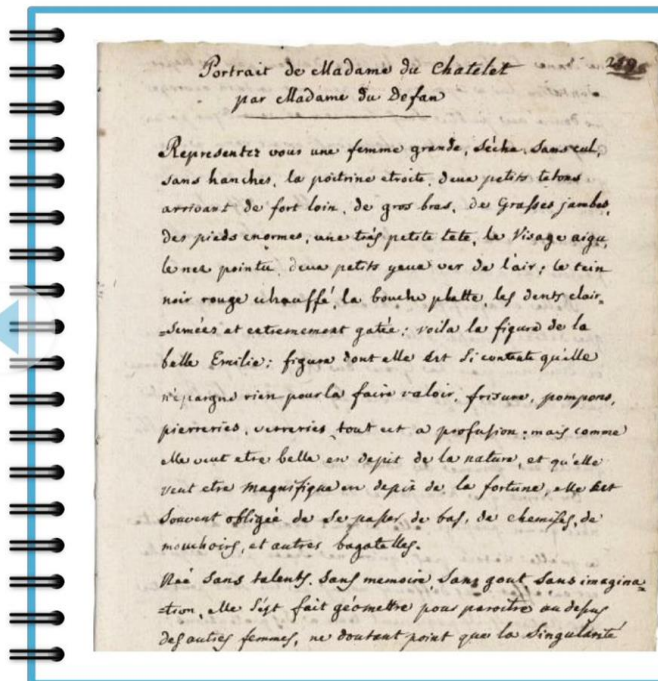 Portrait de Madame du Chatelet
par Madame du Defan
Representez vous une femme grande, séche, sans cul,
sans hanches, la poitrine etroite, deux petits tetons
arrivant de fort loin, de gros bras, de Grasses jambes,
des pieds enormes, une trés petite tete, le Visage aigu,
le nez pointu, deux petits yeux ver de l'air; le tein
noir rouge echauffé, la bouche platte, les dents clair-
-semées et extremement gatée; voila la figure de la
belle Emilie: figure dont elle est si contente qu'elle
n'epargne rien pour la faire valoir, frisure, pompons,
pierreries, verreries tout est a profusion; mais comme
elle veut etre belle en depit de la nature, et qu'elle
veut etre magnifique en depit de la fortune, elle est
souvent obligée de se passer de bas, de chemises, de
mouchoirs, et autres bagatelles.
Née sans talents, sans memoire, sans gout sans imagina-
-tion, elle s'est fait géomettre pour paroitre au desus
des autres femmes, ne doutant point que la Singularité